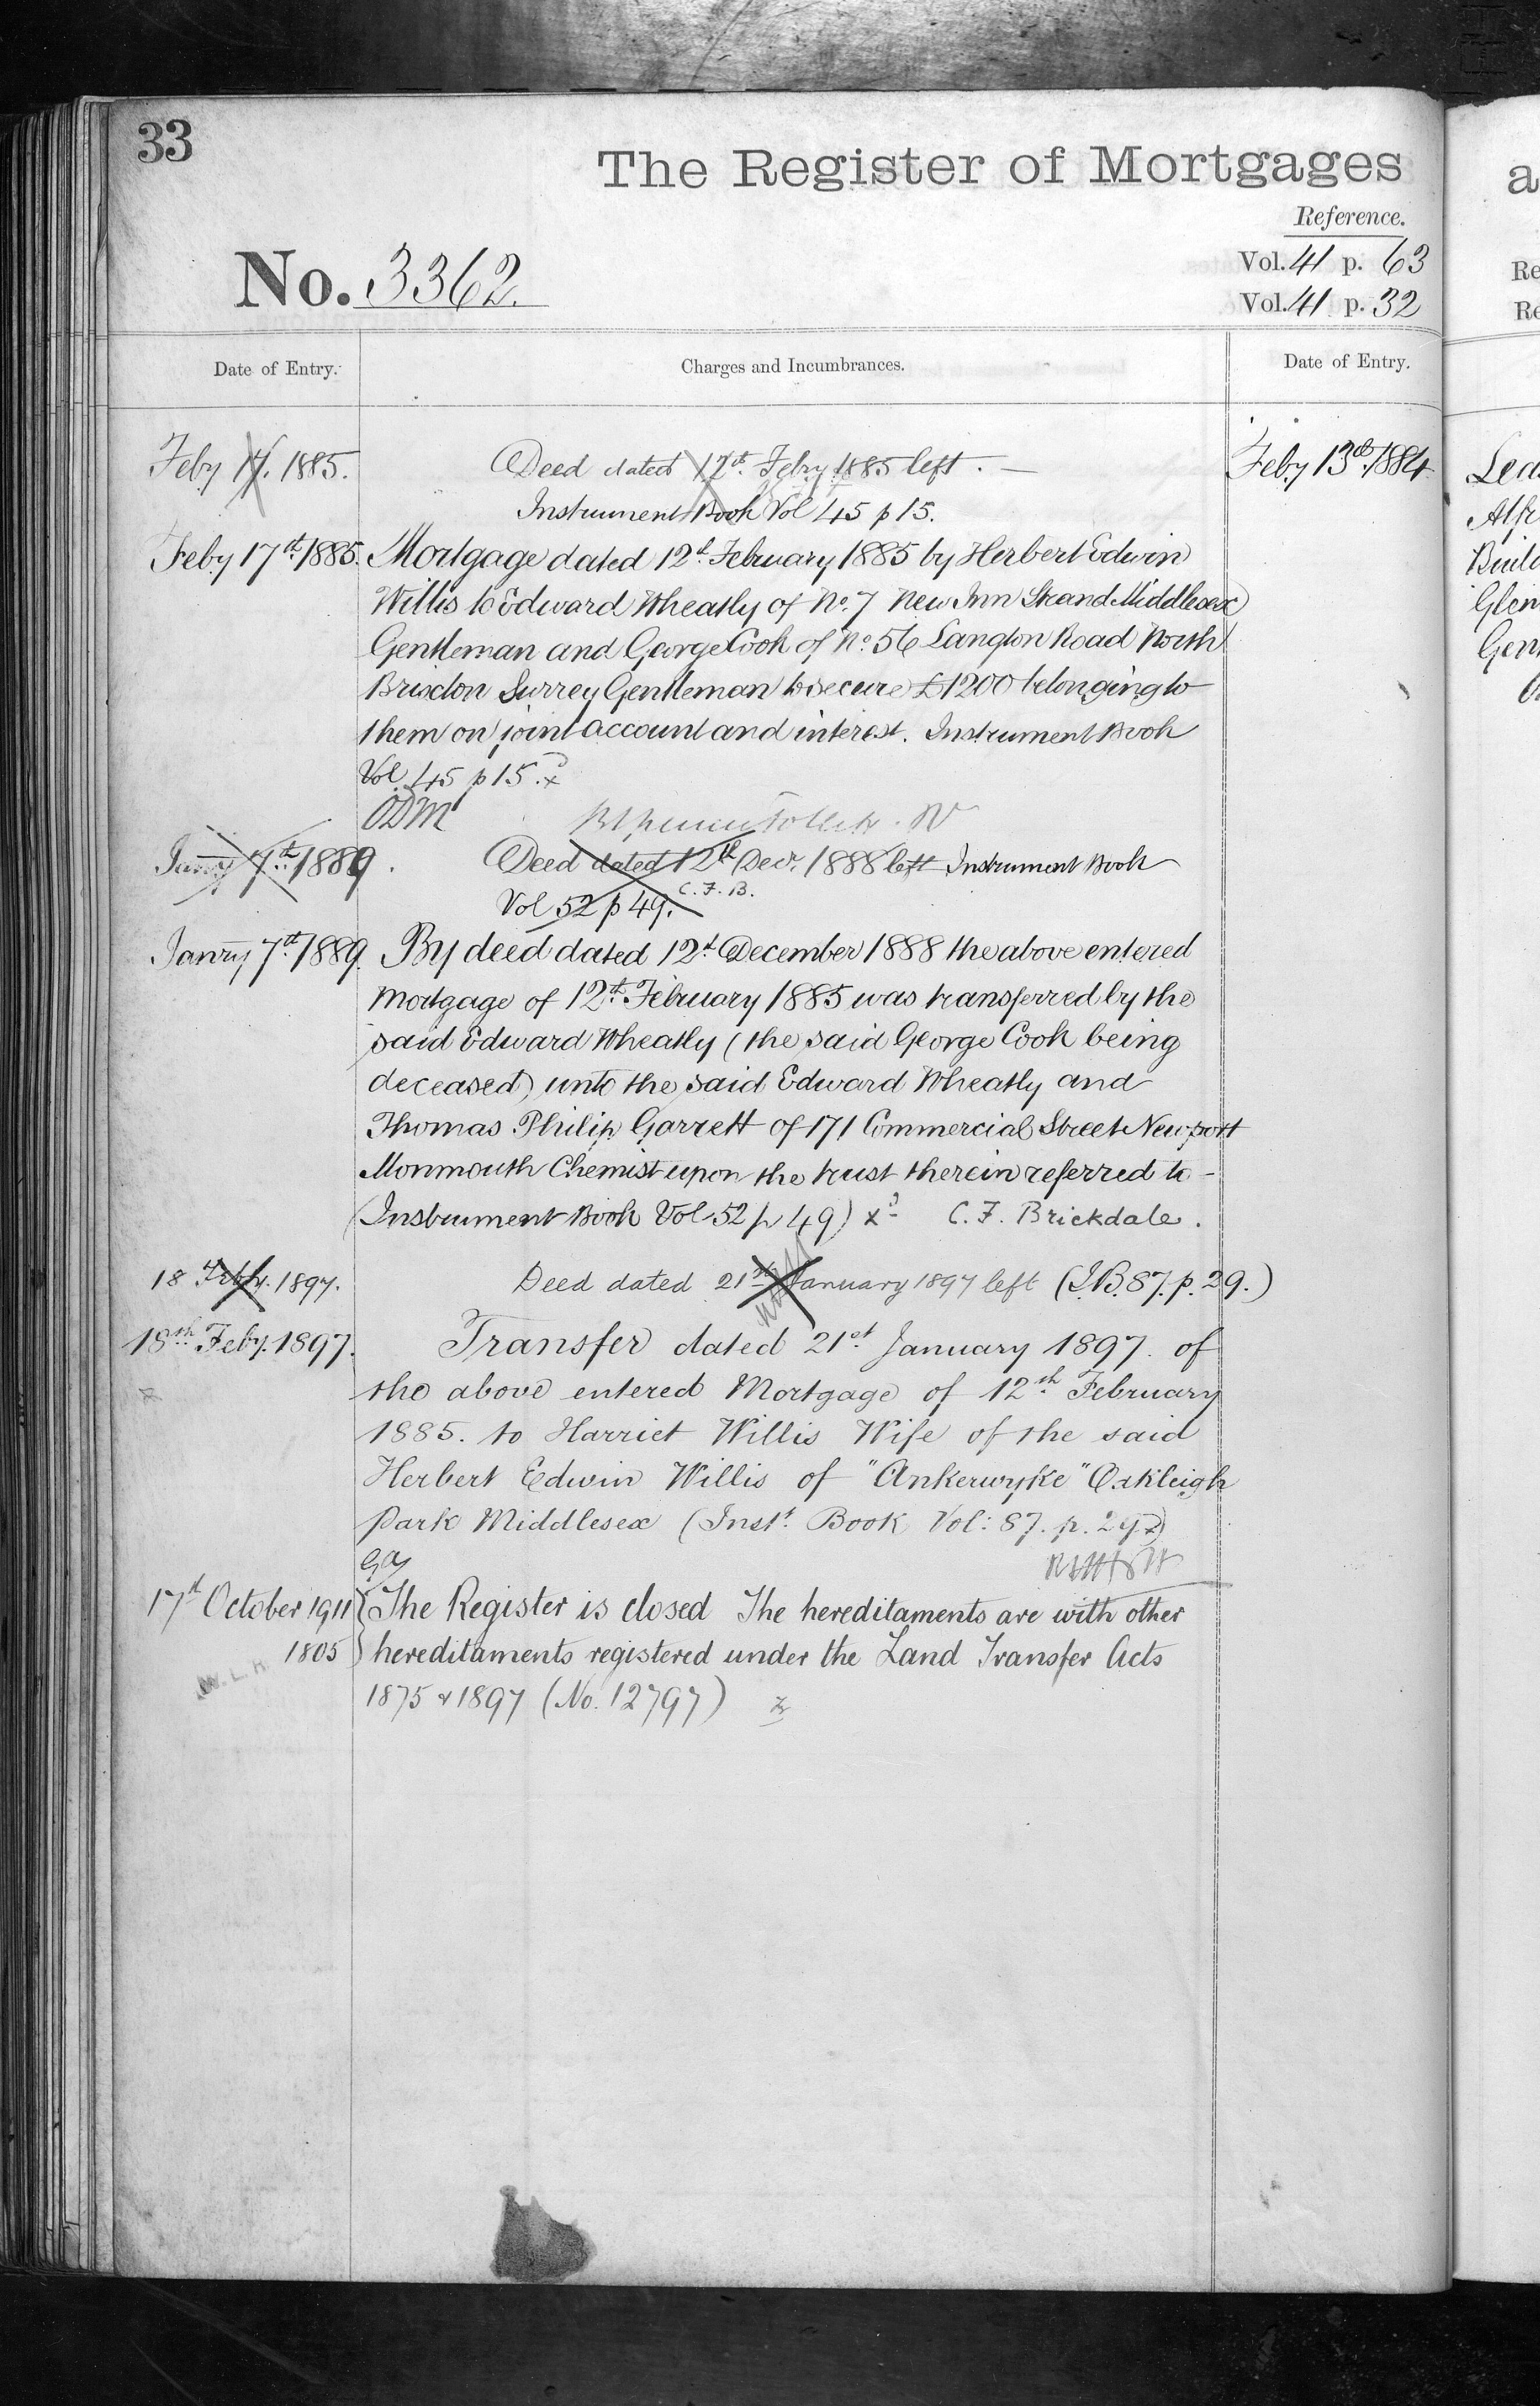 33
The Register of Mortgages
Reference.
No. 3362.
Vol. 41 p. 63
Vol. 41 p. 32
Date of Entry.
Charges and Incumbrances.
Date of Entry.
Feby 17. 1885. Deed dated 12th. Febry 1885 left. — Feby 13th. 1884
Instrument Book Vol 45 p 15.
Feby 17th. 1885. Mortgage dated 12th. February 1885 by Herbert Edwin
Willis to Edward Wheatly of No. 7 New Inn Strand Middlesex
Gentleman and George Cook of No. 56 Langton Road North
Brixton Surrey Gentleman to secure £1200 belonging to
them on joint account and interest. Instrument Book
Vol. 45 p 15. x
ODM
Janry 7th. 1889. Deed dated 12th Decr. 1888 left Instrument Book
Vol 52 p 49. C. F. B.
Janry 7th. 1889. By deed dated 12th. December 1888 the above entered
Mortgage of 12th. February 1885 was transferred by the
said Edward Wheatly (the said George Cook being
deceased) unto the said Edward Wheatly and
Thomas Philip Garrett of 171 Commercial Street Newport
Monmouth Chemist upon the trust therein referred to -
(Instrument Book Vol 52 p 49) x C. F. Brickdale.
18 Feby. 1897. Deed dated 21st January 1897 left (I.B. 87. p. 29.)
18th Feby. 1897. Transfer dated 21st. January 1897. of
the above entered Mortgage of 12th. February
1885. to Harriet Willis Wife of the said
Herbert Edwin Willis of "Ankerwyke" Oakleigh
Park Middlesex (Inst. Book Vol: 87. p. 29)
17th October 1911 The Register is closed The hereditaments are with other
1805 hereditaments registered under the Land Transfer Acts
W. L. H.
1875 & 1897 (No. 12797)
a
Re
Re
Lea
Alfr
Build
Glen
Gen